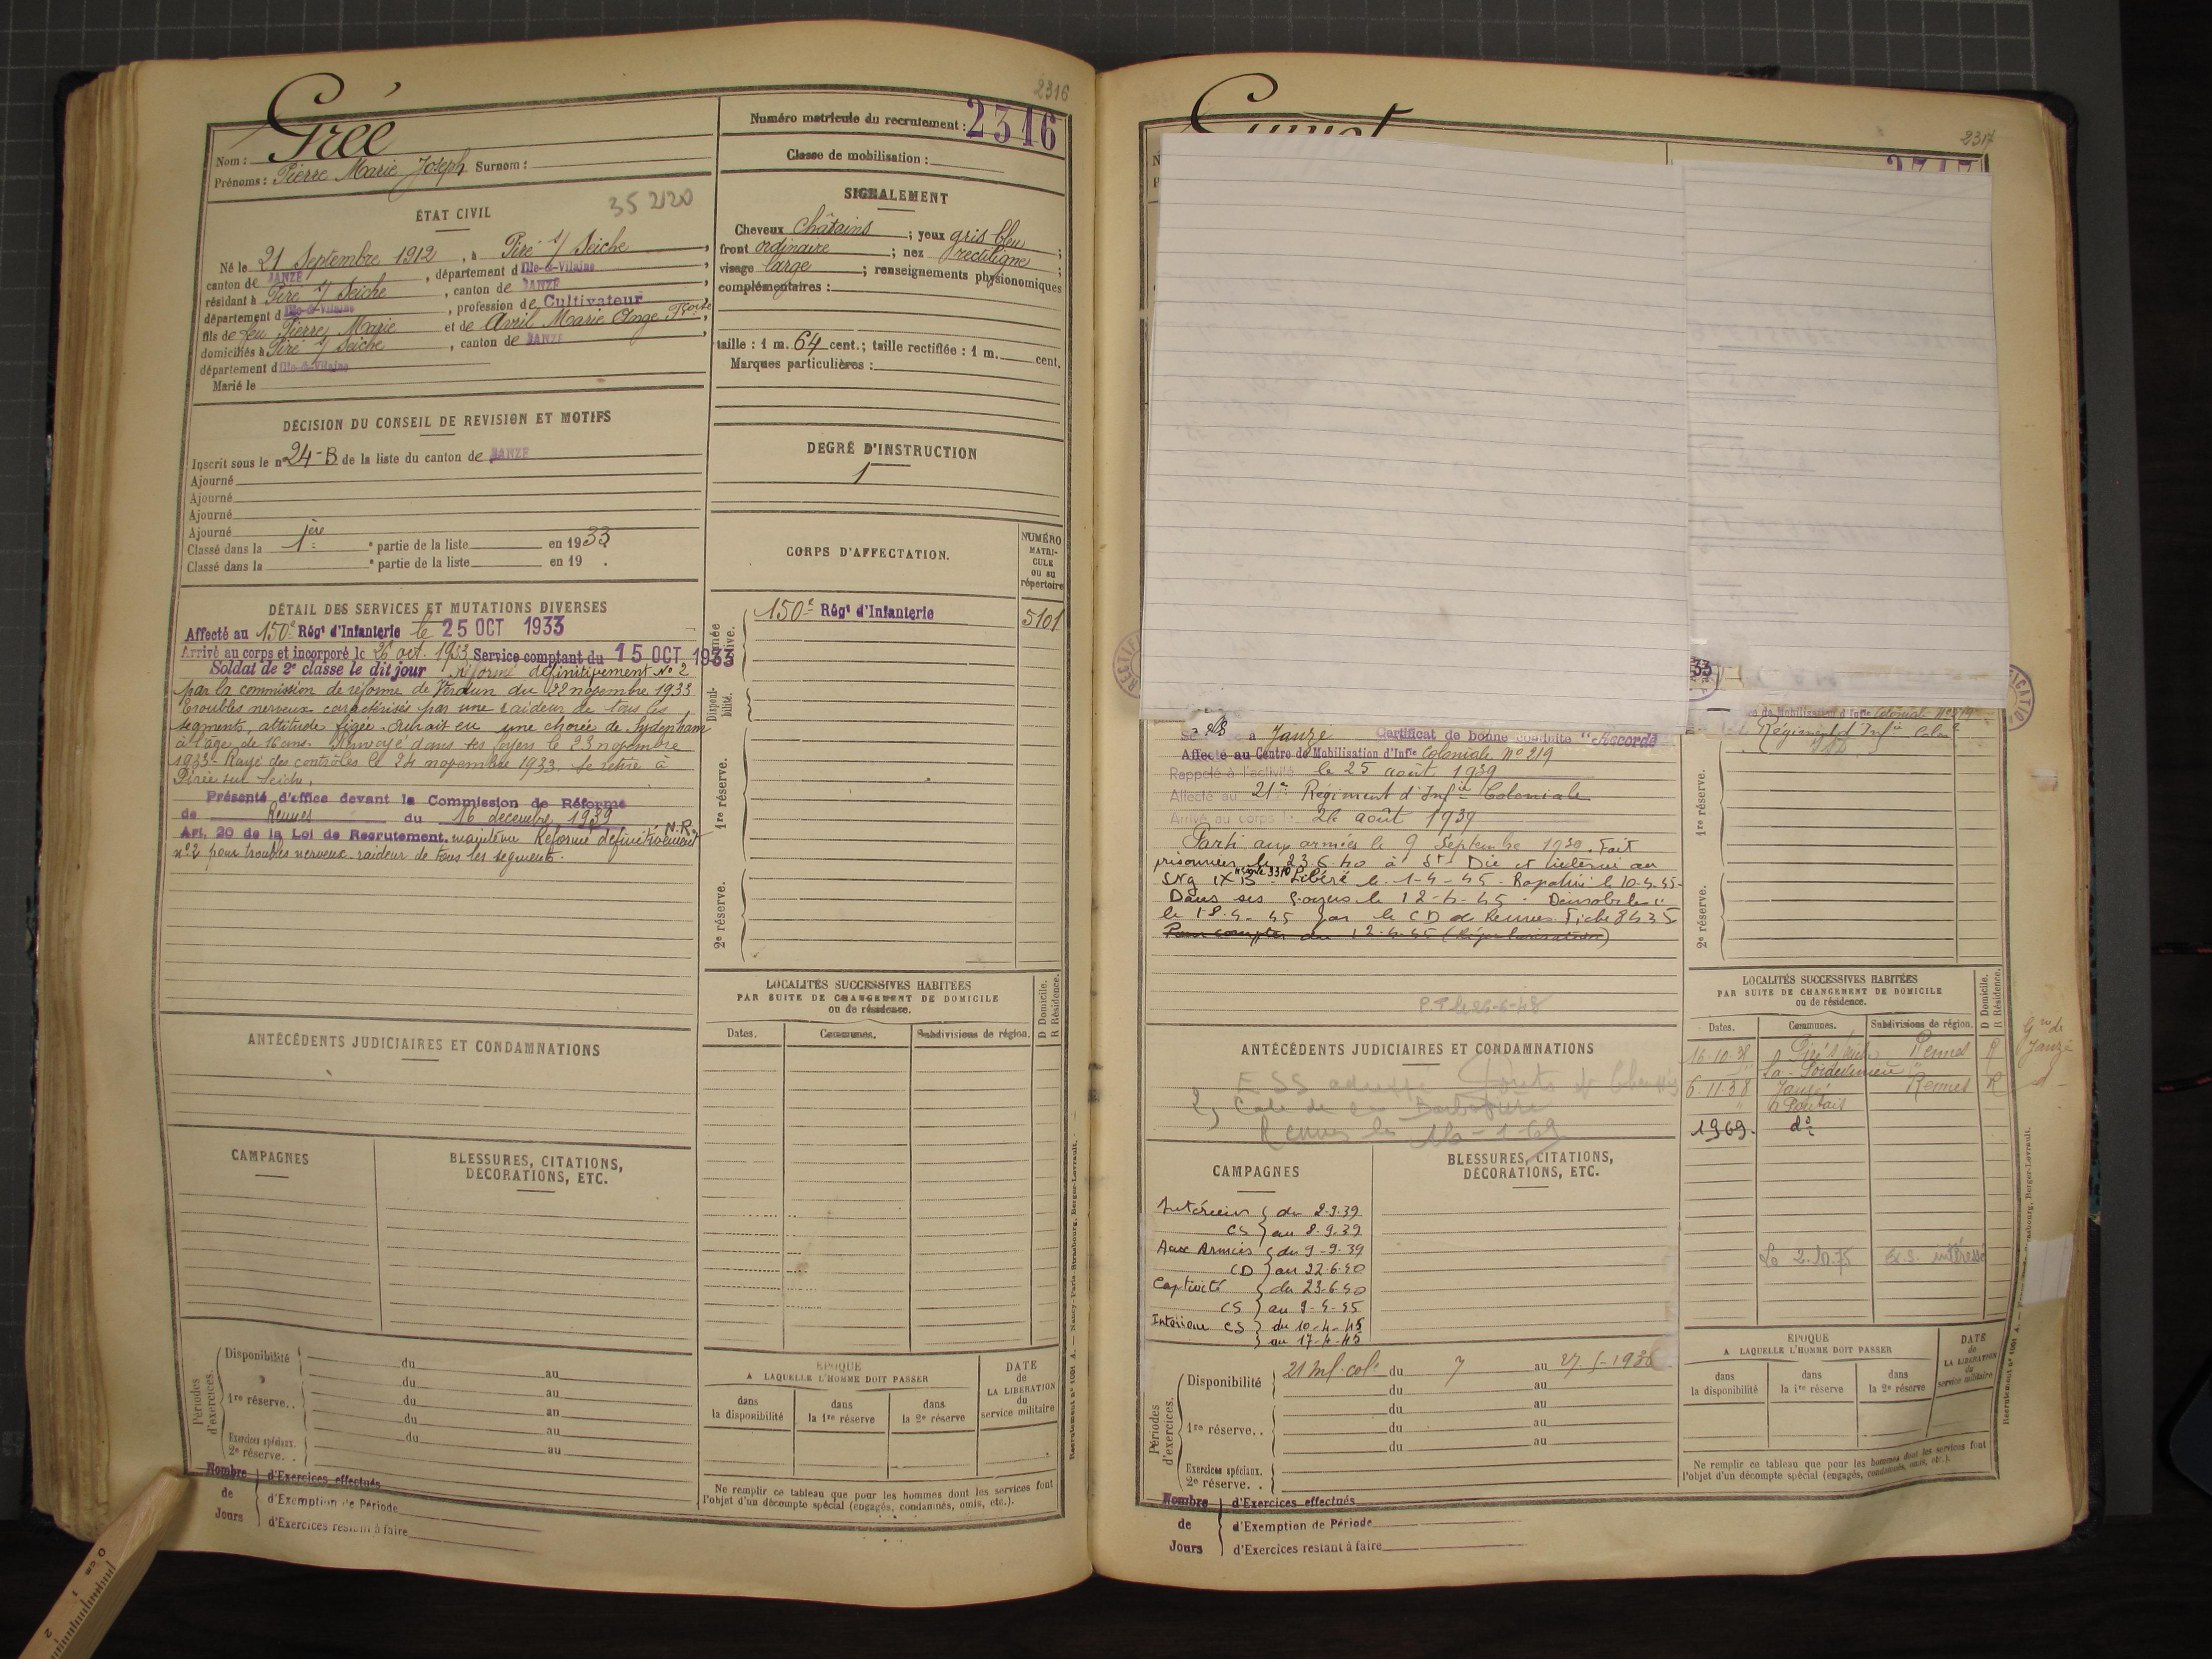 2316
Nom : Gréé
Prénoms : Pierre Marie Joseph Surnom :
Numéro matricule du recrutement : 2316
Classe de mobilisation :
35 2120
ÉTAT CIVIL
Né le 21 Septembre 1912, à Piré s/ Seiche,
canton de JANZÉ, département d Ille-&-Vilaine,
résidant à Piré s/ Seiche, canton de JANZÉ,
département d Ille-&-Vilaine, profession de Cultivateur
fils de feu Pierre Marie et de Avril Marie Ange
domiciliés à Piré s/ Seiche, canton de JANZÉ,
département d Ille-&-Vilaine
Marié le
SIGNALEMENT
Cheveux châtains ; yeux gris bleu ;
front ordinaire ; nez rectiligne ;
visage large ; renseignements physionomiques
complémentaires :
taille : 1 m. 64 cent.; taille rectifiée : 1 m. cent.
Marques particulières :
DÉCISION DU CONSEIL DE REVISION ET MOTIFS
Inscrit sous le n° 24-B de la liste du canton de JANZÉ
Ajourné
Ajourné
Ajourné
Ajourné
Classé dans la 1ère partie de la liste en 1933.
Classé dans la partie de la liste en 19 .
DEGRÉ D'INSTRUCTION
1
DÉTAIL DES SERVICES ET MUTATIONS DIVERSES
Affecté au 150e Régt d'Infanterie le 25 OCT 1933
Arrivé au corps et incorporé le 26 oct. 1933 Service comptant du 15 OCT 1933
Soldat de 2e classe le dit jour Réformé définitivement N° 2
par la commission de réforme de Verdun du 22 novembre 1933
Troubles nerveux caractérisés par une raideur de tous les
segments, attitude figée. Aurait eu une chorée de Sydenham
à l'âge de 16 ans. Renvoyé dans ses foyers le 23 novembre
1933. Rayé des contrôles le 24 novembre 1933. Se retire à
Pirée sur Seiche.
Présenté d'office devant la Commission de Réforme
de Rennes du 16 décembre 1939
Art. 20 de la Loi de Recrutement. maintenu Réformé définitivement N.R.
n° 2 pour troubles nerveux raideur de tous les segments.
CORPS D'AFFECTATION.
NUMÉRO MATRICULE ou au répertoire
150e Régt d'Infanterie 5101
Disponibilité.
1re réserve.
2e réserve.
LOCALITÉS SUCCESSIVES HABITÉES
PAR SUITE DE CHANGEMENT DE DOMICILE
ou de résidence.
Dates. Communes. Subdivisions de région. D Domicile. R Résidence.
ANTÉCÉDENTS JUDICIAIRES ET CONDAMNATIONS
CAMPAGNES
BLESSURES, CITATIONS,
DÉCORATIONS, ETC.
Périodes d'exercices.
Disponibilité du au
du au
1re réserve.. du au
du au
Exercices spéciaux. du au
2e réserve. .
Nombre de Jours
d'Exercices effectués
d'Exemption de Période
d'Exercices restant à faire
ÉPOQUE
A LAQUELLE L'HOMME DOIT PASSER
dans la disponibilité
dans la 1re réserve
dans la 2e réserve
DATE de LA LIBÉRATION du service militaire
Ne remplir ce tableau que pour les hommes dont les services font
l'objet d'un décompte spécial (engagés, condamnés, omis, etc.).
Recrutement n° 1091 A. — Nancy-Paris-Strasbourg, Berger-Levrault. —
2317
Janzé Certificat de bonne conduite "Accordé
Affecté au Centre de Mobilisation d'Infie Coloniale N° 219
Rappelé à l'activité le 25 août 1939
Affecté au 21e Régiment d'Infie Coloniale
Arrivé au corps le 26 août 1939
Parti aux armées le 9 Septembre 1939. Fait
prisonnier le 23.6.40 à St Dié et interné au
Stg IX B Libéré le 1-4-45. Rapatrié le 10-4-45.
Dans ses foyers le 12-4-45. Démobilisé
le 18-4-45 par le CD de Rennes Fiche 8435
Pour compter du 12-4-45 (Régularisation)
Régiment d'Infie Colale
1re réserve.
2e réserve.
ANTÉCÉDENTS JUDICIAIRES ET CONDAMNATIONS
CAMPAGNES
BLESSURES, CITATIONS,
DÉCORATIONS, ETC.
Intérieur du 2-9-39
CS au 8-9-39
Aux Armées du 9-9-39
CD au 22-6-40
Captivité du 23-6-40
CS au 9-4-45
Intérieur CS du 10-4-45
au 17-4-45
LOCALITÉS SUCCESSIVES HABITÉES
PAR SUITE DE CHANGEMENT DE DOMICILE
ou de résidence.
Dates. Communes. Subdivisions de région. D Domicile. R Résidence.
16-10-38 Piré s/ Seiche Rennes R
6-11-38 Janzé Rennes R
1969. d°
Gie de Janzé
Périodes d'exercices.
Disponibilité du 7 au 27-5-1936
du au
du au
1re réserve.. du au
du au
Exercices spéciaux.
2e réserve. .
Nombre de Jours
d'Exercices effectués
d'Exemption de Période
d'Exercices restant à faire
ÉPOQUE
A LAQUELLE L'HOMME DOIT PASSER
dans la disponibilité
dans la 1re réserve
dans la 2e réserve
DATE de LA LIBÉRATION du service militaire
Ne remplir ce tableau que pour les hommes dont les services font
l'objet d'un décompte spécial (engagés, condamnés, omis, etc.).